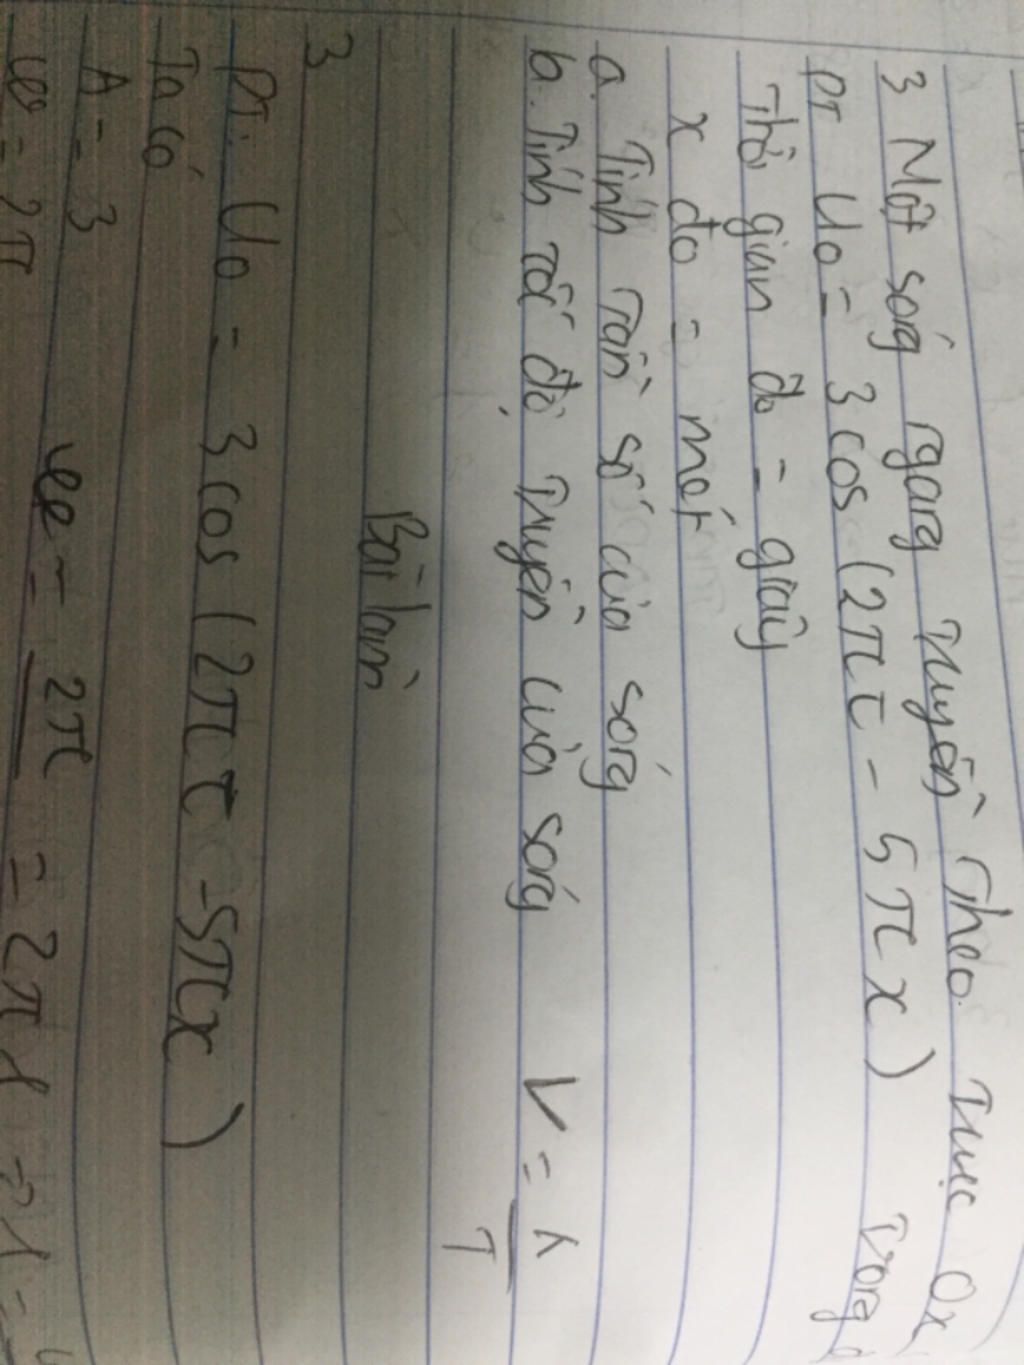 3 Một sóng ngang Truyền Theo Trục Ox
PT Uo = 3 cos (2πt - 5πx) Trong
Thời gian đo = giây
x đo = mét
a. Tính Tần số của sóng
b. Tính Tốc độ Truyền của sóng V = λ/T
Bài làm
3
PT: Uo = 3 cos (2πt - 5πx)
Ta có
A = 3
φ = 2π φ = 2π = 2πf =>f =